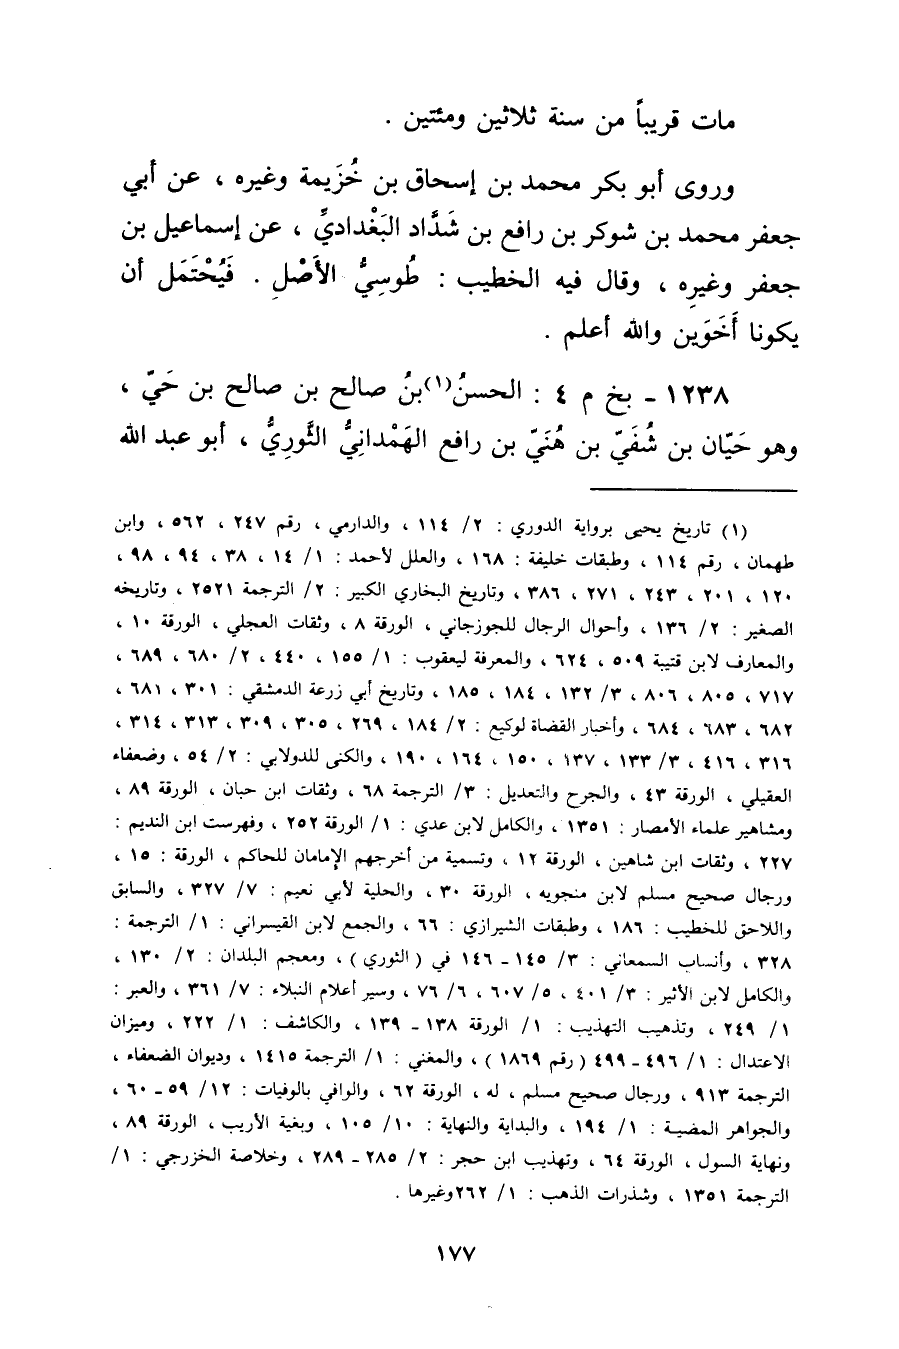 مات قريباً من سنة ثلاثين ومئتين .
وروى أبو بكر محمد بن إسحاق بن خُزَيمة وغيره ، عن أبي
جعفر محمد بن شوكر بن رافع بن شَدَّاد البَغْداديِّ ، عن إسماعيل بن
جعفر وغيرِه ، وقال فيه الخطيب : طُوسِيُّ الأَصْلِ . فَيُحْتَمَل أن
يكونا أَخَوَين والله أعلم .
١٢٣٨ ـ بخ م ٤ : الحسنُ(١)بنُ صالح بن صالح بن حَيّ ،
وهو حَيّان بن شُفَيّ بن هُنَيّ بن رافع الهَمْدانِيُّ الثَّورِيُّ ، أبو عبد الله
(١) تاريخ يحيى برواية الدوري : ٢/ ١١٤ ، والدارمي ، رقم ٢٤٧ ، ٥٦٢ ، وابن
طهمان ، رقم ١١٤ ، وطبقات خليفة : ١٦٨ ، والعلل لأحمد : ١/ ١٤ ، ٣٨ ، ٩٤ ، ٩٨ ،
١٢٠ ، ٢٠١ ، ٢٤٣ ، ٢٧١ ، ٣٨٦ ، وتاريخ البخاري الكبير : ٢/ الترجمة ٢٥٢١ ، وتاريخه
الصغير : ٢/ ١٣٦ ، وأحوال الرجال للجوزجاني ، الورقة ٨ ، وثقات العجلي ، الورقة ١٠ ،
والمعارف لابن قتيبة ٥٠٩ ، ٦٢٤ ، والمعرفة ليعقوب : ١/ ١٥٥ ، ٤٤٠ ، ٢/ ٦٨٠ ، ٦٨٩ ،
٧١٧ ، ٨٠٥ ، ٨٠٦ ، ٣/ ١٣٢ ، ١٨٤ ، ١٨٥ ، وتاريخ أبي زرعة الدمشقي : ٣٠١ ، ٦٨١ ،
٦٨٢ ، ٦٨٣ ، ٦٨٤ ، وأخبار القضاة لوكيع : ٢/ ١٨٤ ، ٢٦٩ ، ٣٠٥ ، ٣٠٩ ، ٣١٣ ، ٣١٤ ،
٣١٦ ، ٤١٦ ، ٣/ ١٣٣ ، ١٣٧ ، ١٥٠ ، ١٦٤ ، ١٩٠ ، والكنى للدولابي : ٢/ ٥٤ ، وضعفاء
العقيلي ، الورقة ٤٣ ، والجرح والتعديل : ٣/ الترجمة ٦٨ ، وثقات ابن حبان ، الورقة ٨٩ ،
ومشاهير علماء الأمصار : ١٣٥١ ، والكامل لابن عدي : ١/ الورقة ٢٥٢ ، وفهرست ابن النديم :
٢٢٧ ، وثقات ابن شاهين ، الورقة ١٢ ، وتسمية من أخرجهم الإمامان للحاكم ، الورقة : ١٥ ،
ورجال صحيح مسلم لابن منجويه ، الورقة ٣٠ ، والحلية لأبي نعيم : ٧/ ٣٢٧ ، والسابق
واللاحق للخطيب : ١٨٦ ، وطبقات الشيرازي : ٦٦ ، والجمع لابن القيسراني : ١/ الترجمة :
٣٢٨ ، وأنساب السمعاني : ٣/ ١٤٥ ـ ١٤٦ في ( الثوري ) ، ومعجم البلدان : ٢/ ١٣٠ ،
والكامل لابن الأثير : ٣/ ٤٠١ ، ٥/ ٦٠٧ ، ٦/ ٧٦ ، وسير أعلام النبلاء : ٧/ ٣٦١ ، والعبر :
١/ ٢٤٩ ، وتذهيب التهذيب : ١/ الورقة ١٣٨ ـ ١٣٩ ، والكاشف : ١/ ٢٢٢ ، وميزان
الاعتدال : ١/ ٤٩٦ ـ ٤٩٩ ( رقم ١٨٦٩ ) ، والمغني : ١/ الترجمة ١٤١٥ ، وديوان الضعفاء ،
الترجمة ٩١٣ ، ورجال صحيح مسلم ، له ، الورقة ٦٢ ، والوافي بالوفيات : ١٢/ ٥٩ ـ ٦٠ ،
والجواهر المضية : ١/ ١٩٤ ، والبداية والنهاية : ١٠/ ١٠٥ ، وبغية الأريب ، الورقة ٨٩ ،
ونهاية السول ، الورقة ٦٤ ، وتهذيب ابن حجر : ٢/ ٢٨٥ ـ ٢٨٩ ، وخلاصة الخزرجي : ١/
الترجمة ١٣٥١ ، وشذرات الذهب : ١/ ٢٦٢وغيرها .
١٧٧